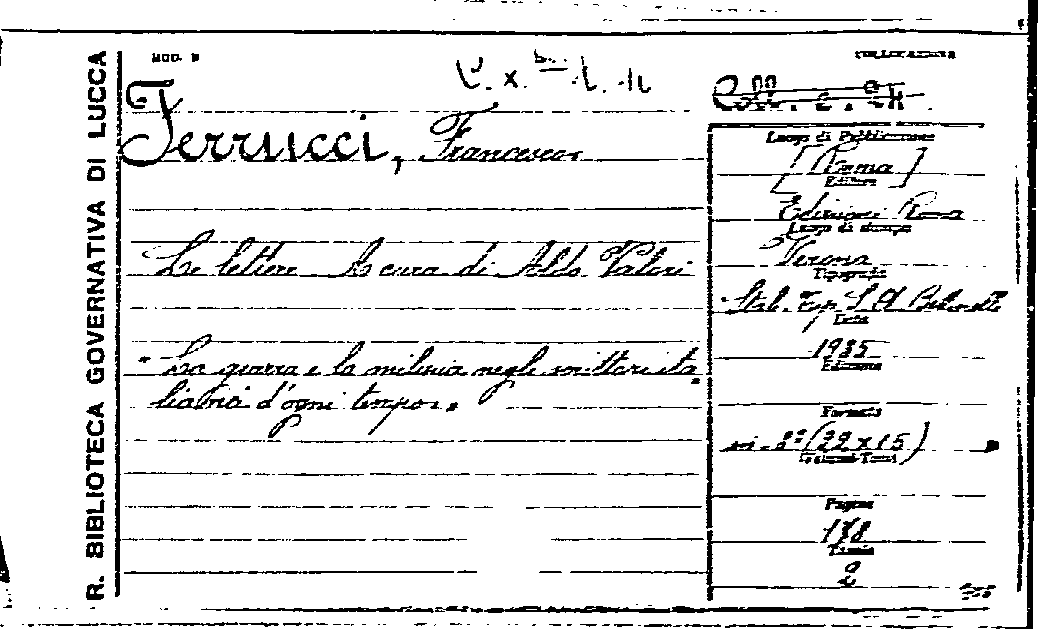 R. BIBLIOTECA GOVERNATIVA DI LUCCA
MOD. B
Ferrucci, Francesco
Le lettere A cura di Aldo Valori
"La guerra e la milizia negli scrittori ita
liani d'ogni tempo".
COLLOCAZIONE
Luogo di Pubblicazione
[Roma]
Editore
Edizioni Roma
Luogo di stampa
Verona
Tipografia
Stab. Tip. S. A.
Data
1935
Edizione
Formato
in-8° (22 x 15)
Volumi-Tomi
Pagine
178
Tavole
2